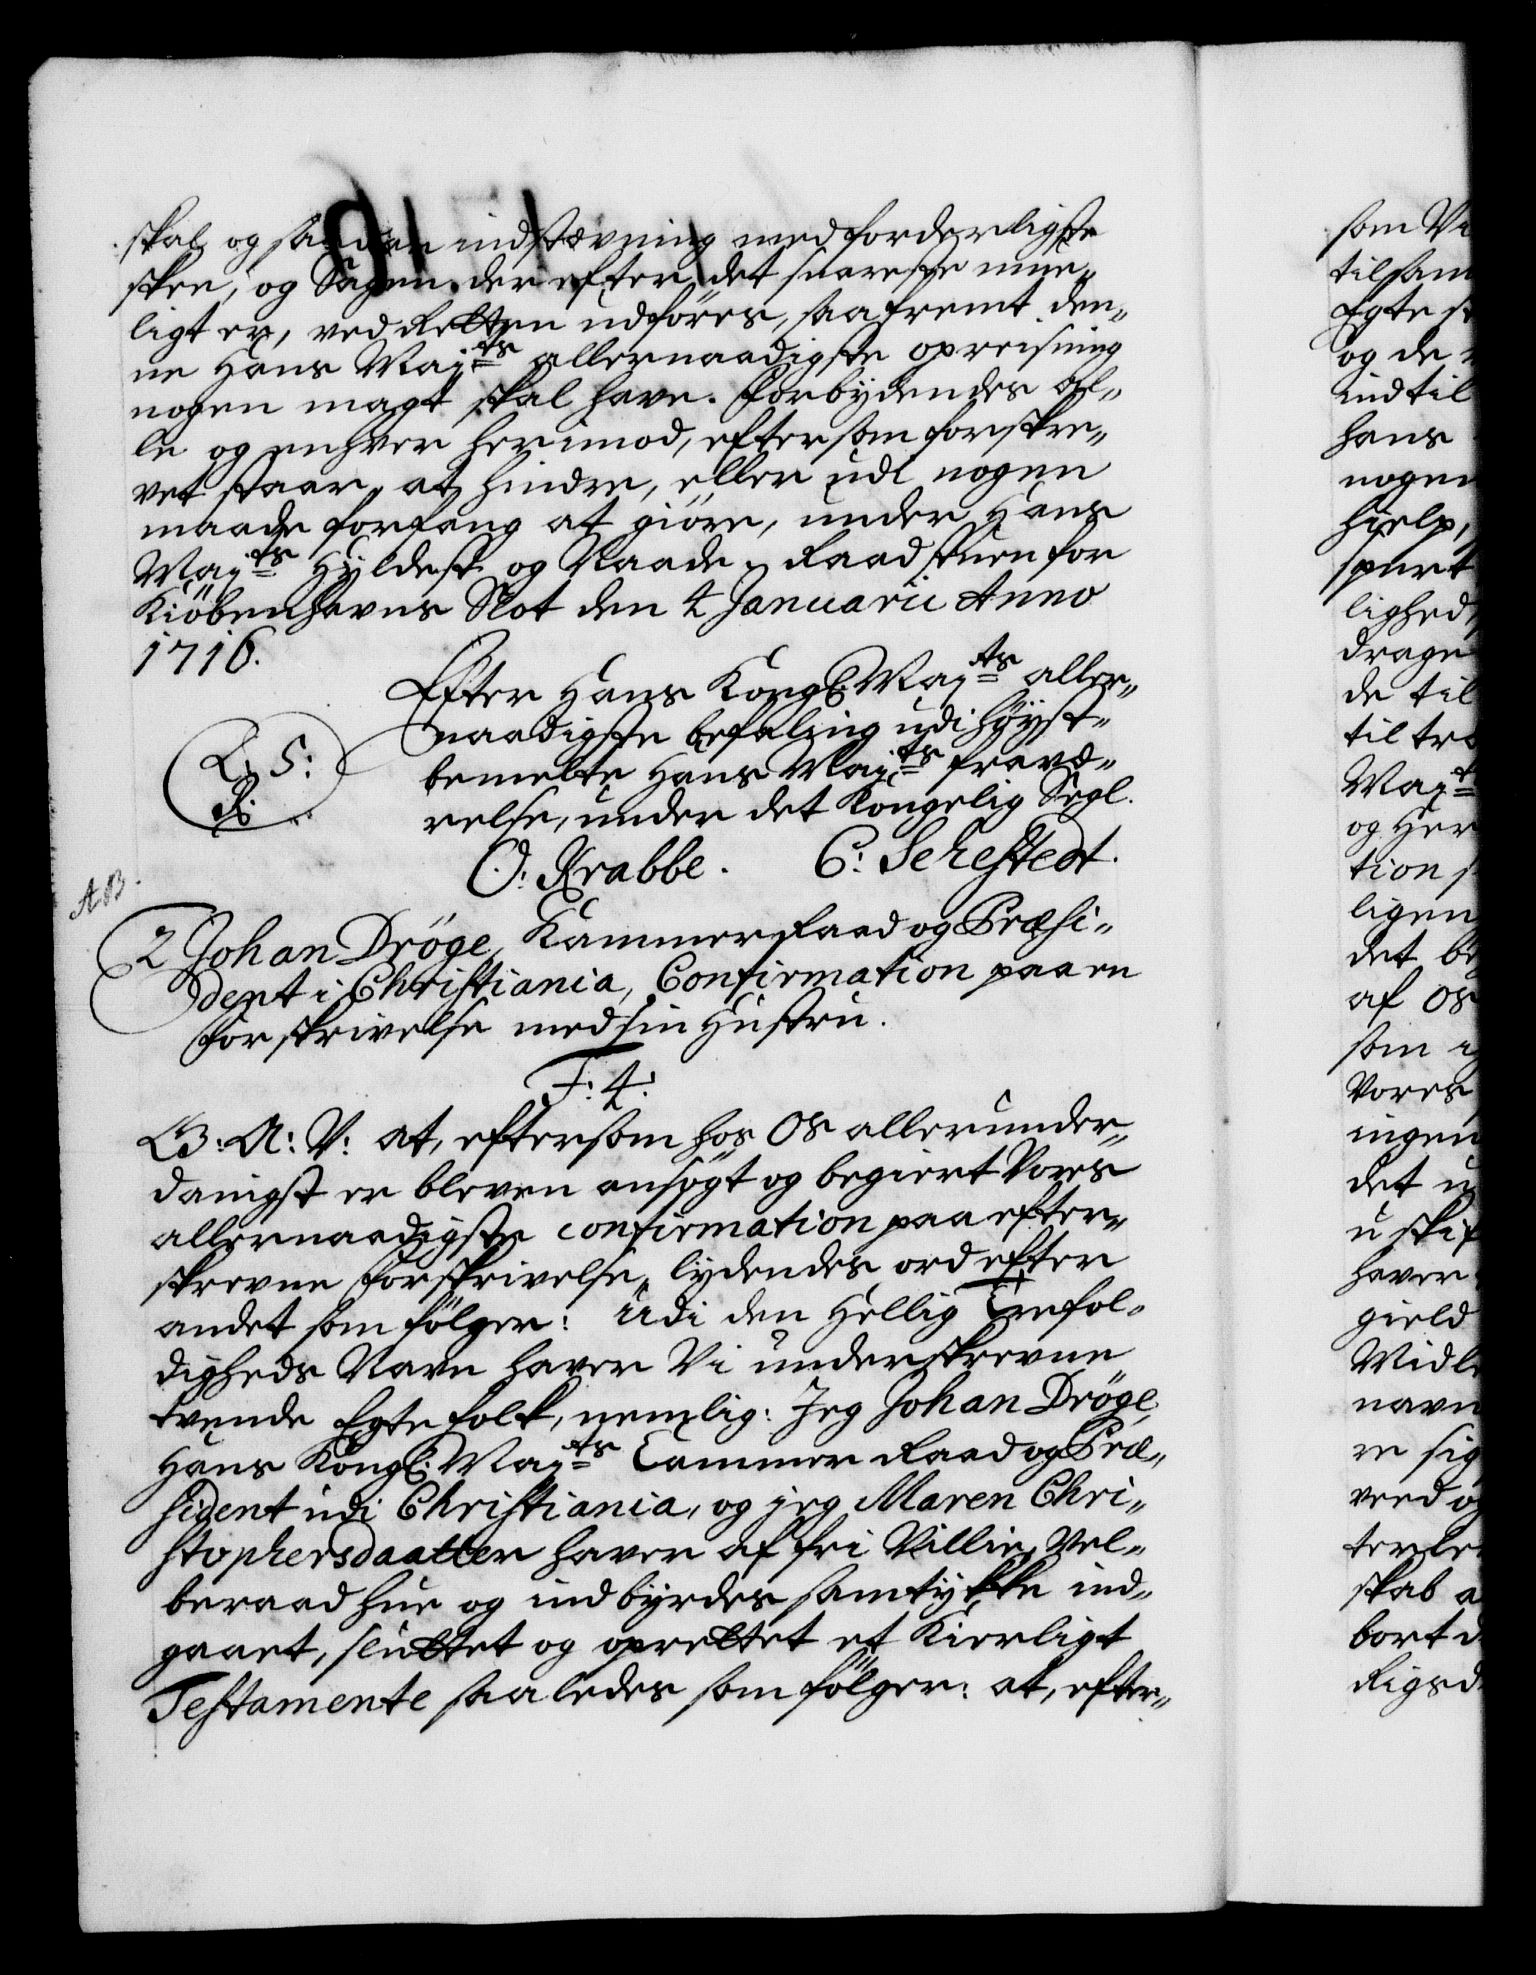 skal og saadan indstævning med forderligste
skee, og Sagen der efter det snareste mue„
ligt er, ved Retten udføres, saafremt den„
ne Hans Maj:ts allernaadigste opreisning
nogen magt skal have. Forbydendes al„
le og enhver herimod, eftersom forskre„
vet staar, at hindre, eller udi nogen
maade forfang at giöre, under Hans
Maj:ts Hyldest og Naade. Raadstuen for
Kiöbenhavns Slot den 4 Januarii Anno
1716.
Efter Hans Kongl: Maj:ts aller„
naadigste befaling udi höyst„
bemelte Hans Maj:ts fravæ„
relse, under det Kongelig Segl.
L. S:
R.
O: Krabbe. C: Sehestedt.
AB.
2 Johan Dröge, Kammer Raad og Præsi„
dent i Christiania, Confirmation paa en
forskrivelse med sin Hustru.
F: 4:
G: A: V: at, eftersom hos Os allerunder„
danigst er bleven ansögt og begiert Vores
allernaadigste confirmation paa efter„
skrevne forskrivelse, lydendes ord efter
andet som fölger: Udi den Hellig Trefol„
digheds Navn haver Vi underskrevne
tvende Egtefolk, nemlig: Jeg Johan Dröge,
Hans Kongl: Maj:ts Cammer Raad og Præ„
sident udi Christiania, og jeg Maren Chri„
stophersdaatter haver af fri Villie, Vel„
beraad hue og indbyrdes samtykke ind„
gaaet, sluttet og oprettet et Kierligt
Testamente saaledes som fölger: at, efter„
som Vi
tilsam
Egte
og de
indtil
hans
nogen
hielp,
spurt
lighed,
drage
de til
til tr
Maj:t
og Her
tion
ligen
det
af Os
som
Vores
ingen
det
uskif
haver
gield
Midle
navn
re sig
veed og
terle
skab
bort
Rigsd